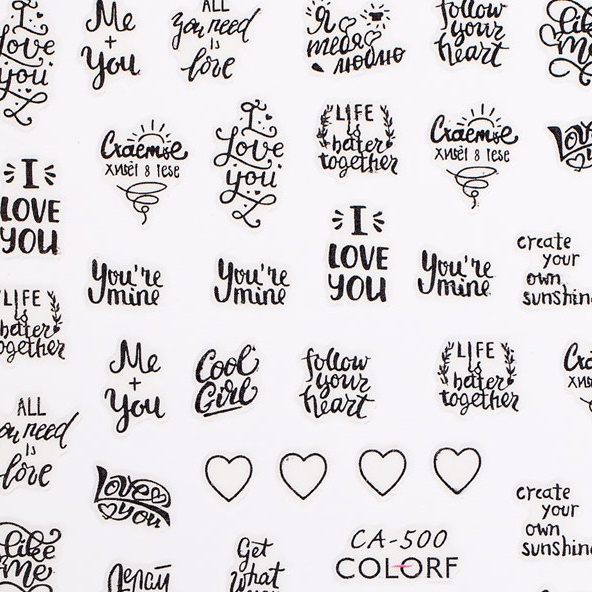 I
Love
you
Me
+
You
ALL
you need
is
love
Я
тебя
люблю
follow
your
heart
like
me
Счастье
живёт в тебе
I
Love
you
LIFE
is
better
together
Счастье
живёт в тебе
Love
I
LOVE
YOU
I
LOVE
YOU
You're
mine
You're
mine
You're
mine
create
your
own
sunshine
LIFE
is
better
together
Me
+
You
Cool
Girl
follow
your
heart
LIFE
is
better
together
ALL
you need
is
love
Love
you
create
your
own
sunshine
like
me
Делай
Get
what
CA-500
COLORF